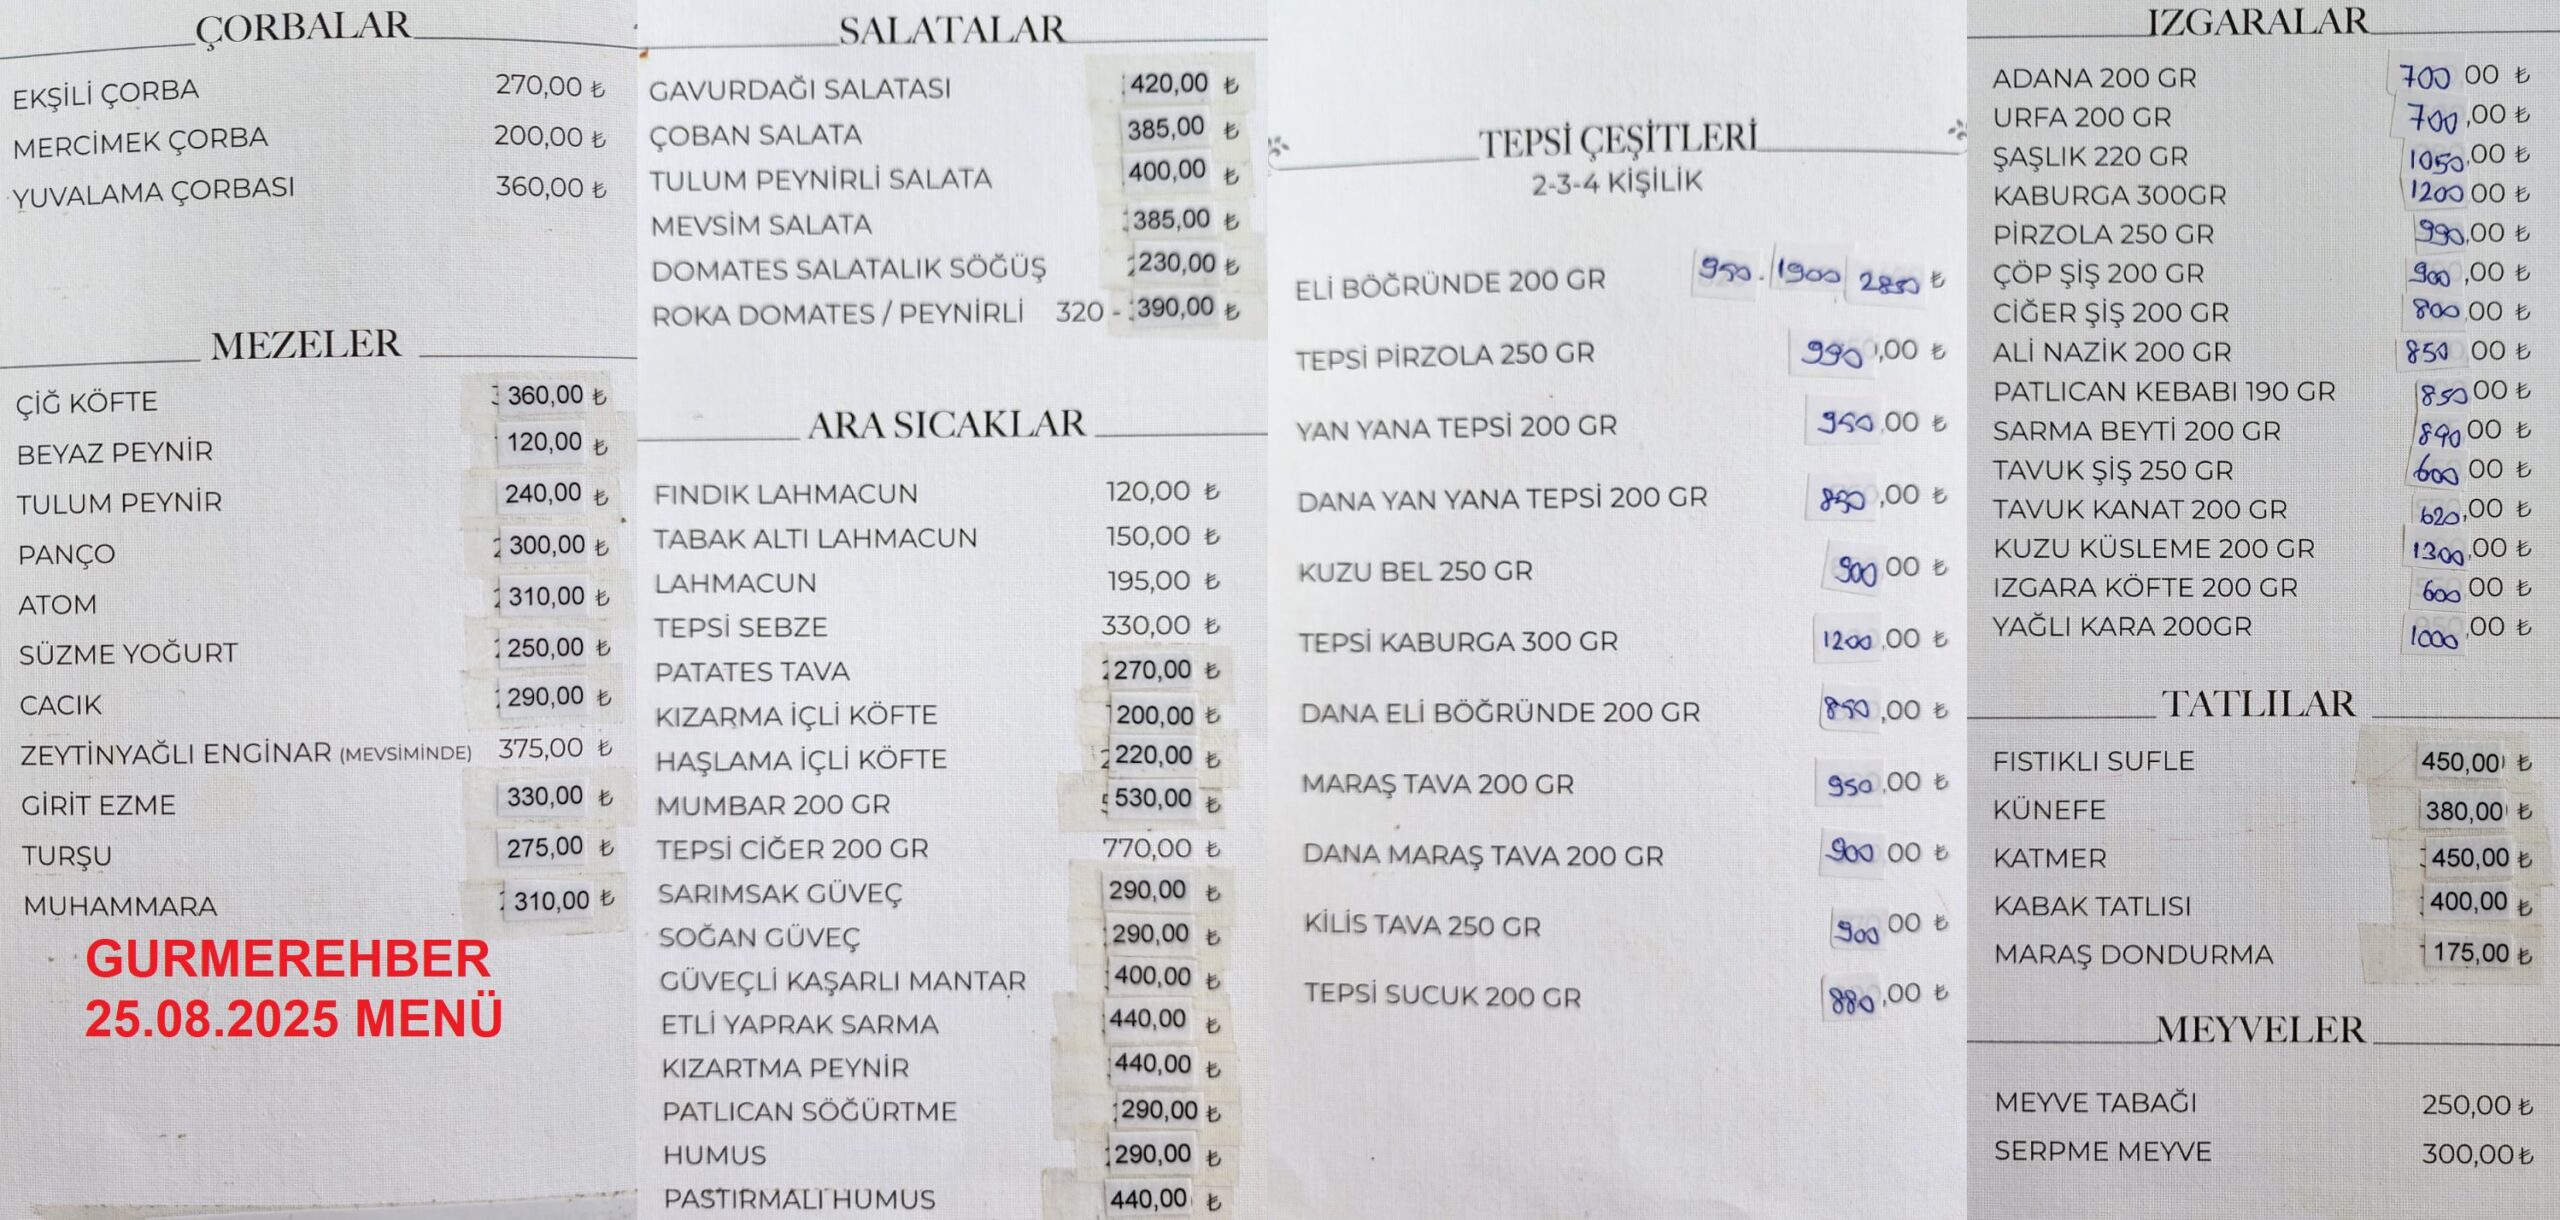 ÇORBALAR
EKŞİLİ ÇORBA 270,00 ₺
MERCİMEK ÇORBA 200,00 ₺
YUVALAMA ÇORBASI 360,00 ₺
MEZELER
ÇİĞ KÖFTE 360,00 ₺
BEYAZ PEYNİR 120,00 ₺
TULUM PEYNİR 240,00 ₺
PANÇO 300,00 ₺
ATOM 310,00 ₺
SÜZME YOĞURT 250,00 ₺
CACIK 290,00 ₺
ZEYTİNYAĞLI ENGİNAR (MEVSİMİNDE) 375,00 ₺
GİRİT EZME 330,00 ₺
TURŞU 275,00 ₺
MUHAMMARA 310,00 ₺
GURMEREHBER
25.08.2025 MENÜ
SALATALAR
GAVURDAĞI SALATASI 420,00 ₺
ÇOBAN SALATA 385,00 ₺
TULUM PEYNİRLİ SALATA 400,00 ₺
MEVSİM SALATA 385,00 ₺
DOMATES SALATALIK SÖĞÜŞ 230,00 ₺
ROKA DOMATES / PEYNİRLİ 320 - 390,00 ₺
ARA SICAKLAR
FINDIK LAHMACUN 120,00 ₺
TABAK ALTI LAHMACUN 150,00 ₺
LAHMACUN 195,00 ₺
TEPSİ SEBZE 330,00 ₺
PATATES TAVA 270,00 ₺
KIZARMA İÇLİ KÖFTE 200,00 ₺
HAŞLAMA İÇLİ KÖFTE 220,00 ₺
MUMBAR 200 GR 530,00 ₺
TEPSİ CİĞER 200 GR 770,00 ₺
SARIMSAK GÜVEÇ 290,00 ₺
SOĞAN GÜVEÇ 290,00 ₺
GÜVEÇLİ KAŞARLI MANTAR 400,00 ₺
ETLİ YAPRAK SARMA 440,00 ₺
KIZARTMA PEYNİR 440,00 ₺
PATLICAN SÖĞÜRTME 290,00 ₺
HUMUS 290,00 ₺
PASTIRMALI HUMUS 440,00 ₺
TEPSİ ÇEŞİTLERİ
2-3-4 KİŞİLİK
ELİ BÖĞRÜNDE 200 GR 950 - 1900 2850 ₺
TEPSİ PİRZOLA 250 GR 990,00 ₺
YAN YANA TEPSİ 200 GR 950,00 ₺
DANA YAN YANA TEPSİ 200 GR 850,00 ₺
KUZU BEL 250 GR 900 00 ₺
TEPSİ KABURGA 300 GR 1200,00 ₺
DANA ELİ BÖĞRÜNDE 200 GR 850,00 ₺
MARAŞ TAVA 200 GR 950,00 ₺
DANA MARAŞ TAVA 200 GR 900 00 ₺
KİLİS TAVA 250 GR 900 00 ₺
TEPSİ SUCUK 200 GR 880,00 ₺
IZGARALAR
ADANA 200 GR 700 00 ₺
URFA 200 GR 700,00 ₺
ŞAŞLIK 220 GR 1050,00 ₺
KABURGA 300GR 1200 00 ₺
PİRZOLA 250 GR 990,00 ₺
ÇÖP ŞİŞ 200 GR 900,00 ₺
CİĞER ŞİŞ 200 GR 800,00 ₺
ALİ NAZİK 200 GR 850,00 ₺
PATLICAN KEBABI 190 GR 850 00 ₺
SARMA BEYTİ 200 GR 890 00 ₺
TAVUK ŞİŞ 250 GR 600 00 ₺
TAVUK KANAT 200 GR 620,00 ₺
KUZU KÜSLEME 200 GR 1300,00 ₺
IZGARA KÖFTE 200 GR 600 00 ₺
YAĞLI KARA 200GR 1000,00 ₺
TATLILAR
FISTIKLI SUFLE 450,00 ₺
KÜNEFE 380,00 ₺
KATMER 450,00 ₺
KABAK TATLISI 400,00 ₺
MARAŞ DONDURMA 175,00 ₺
MEYVELER
MEYVE TABAĞI 250,00 ₺
SERPME MEYVE 300,00 ₺